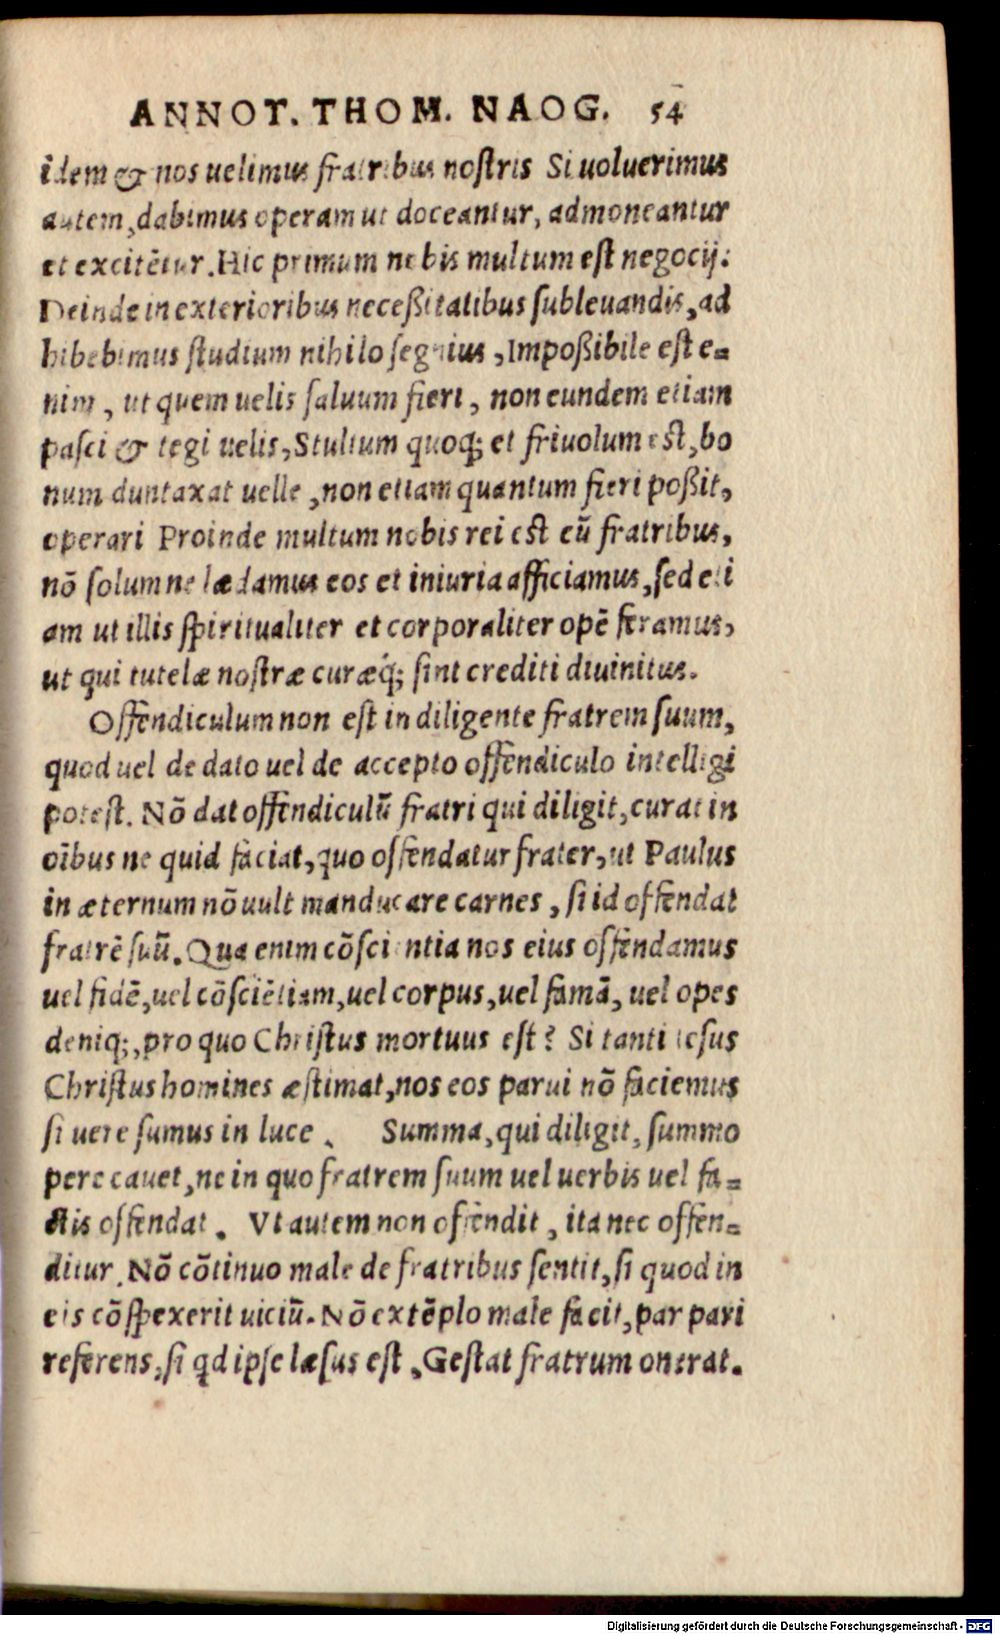 ANNOT. THOM. NAOG. 54
idem & nos uelimus fratribus nostris Si uoluerimus
autem, dabimus operam ut doceantur, admoneantur
et excitētur. Hic primum nobis multum est negocij:
Deinde in exterioribus neceßitatibus subleuandis, ad
hibebimus studium nihilo segnius, Impoßibile est e=
nim, ut quem uelis saluum fieri, non eundem etiam
pasci & tegi uelis, Stultum quoq; et friuolum est, bo
num duntaxat uelle, non etiam quantum fieri poßit,
operari Proinde multum nobis rei est cū fratribus,
nō solum ne lædamus eos et iniuria afficiamus, sed eti
am ut illis spiritualiter et corporaliter opē feramus,
ut qui tutelæ nostræ curæq́; sint crediti diuinitus.
Offendiculum non est in diligente fratrem suum,
quod uel de dato uel de accepto offendiculo intelligi
potest. Nō dat offendiculū fratri qui diligit, curat in
oībus ne quid faciat, quo offendatur frater, ut Paulus
in æternum nō uult manducare carnes, si id offendat
fratrē suū. Qua enim cōscientia nos eius offendamus
uel fidē, uel cōsciētiam, uel corpus, uel famā, uel opes
deniq;, pro quo Christus mortuus est? Si tanti iesus
Christus homines æstimat, nos eos parui nō faciemus
si uere sumus in luce. Summa, qui diligit, summo
pere cauet, ne in quo fratrem suum uel uerbis uel fa=
ctis offendat. Vt autem non offendit, ita nec offen=
ditur. Nō cōtinuo male de fratribus sentit, si quod in
eis cōspexerit uiciū. Nō extēplo male facit, par pari
referens, si qd ipse læsus est, Gestat fratrum onerat.
Digitalisierung gefördert durch die Deutsche Forschungsgemeinschaft - DFG